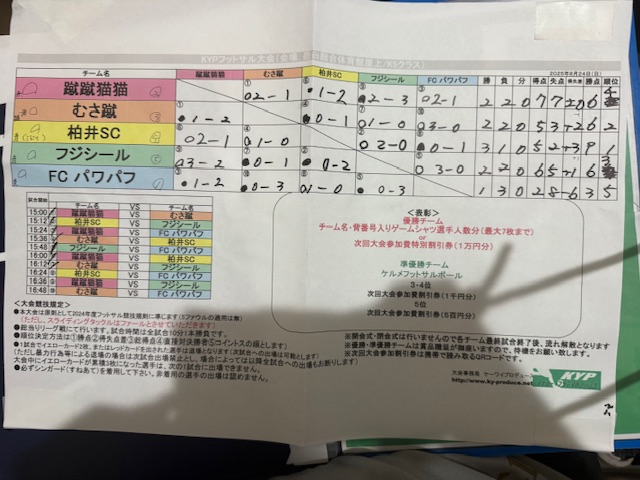 KYPフットサル大会
2025年8月24日(日)
チーム名 蹴蹴猫猫 むさ蹴 柏井SC フジシール FC パワパフ 勝 負 分 得点 失点 得失差 勝点 順位
蹴蹴猫猫 ○2-1 ●1-2 ●2-3 ○2-1 2 2 0 7 7 ±0 6 4
むさ蹴 ●1-2 ●0-1 ○1-0 ○3-0 2 2 0 5 3 +2 6 2
柏井SC ○2-1 ○1-0 ○2-0 ●0-1 3 1 0 5 2 +3 9 1
フジシール ○3-2 ●0-1 ●0-2 ○3-0 2 2 0 6 5 +1 6 3
FC パワパフ ●1-2 ●0-3 ○1-0 ●0-3 1 3 0 2 8 -6 3 5
試合開始 チーム名 VS チーム名
15:00 蹴蹴猫猫 VS むさ蹴
15:12 柏井SC VS フジシール
15:24 蹴蹴猫猫 VS FC パワパフ
15:36 むさ蹴 VS 柏井SC
15:48 フジシール VS FC パワパフ
16:00 蹴蹴猫猫 VS 柏井SC
16:12 むさ蹴 VS フジシール
16:24 柏井SC VS FC パワパフ
16:36 蹴蹴猫猫 VS フジシール
16:48 むさ蹴 VS FC パワパフ
<表彰>
優勝チーム
チーム名・背番号入りゲームシャツ選手人数分(最大7枚まで)
次回大会参加費特別割引券(1万円分)
準優勝チーム
ケルメフットサルボール
3-4位
次回大会参加費割引券(1千円分)
5位
次回大会参加費割引券(5百円分)
<大会競技規定>
●本大会は原則として2024年度フットサル競技規則に準じます(5ファウルの適用は無)
(ただし、スライディングタックルはファールとさせていただきます)
●総当りリーグ戦にて行います。試合時間は全試合10分1本勝負です。
●順位決定方法は①勝点②得失点差③総得点④直接対決勝者⑤コイントスの順とします
●1試合でイエローカード2枚、またはレッドカードを出された選手は退場となります(次試合への出場は可能とします)
(ただし暴力行為等による退場の場合は次試合出場禁止とし、場合によっては以降全試合への出場もお断りします)
●大会中にイエローカードが累積3枚になった選手は、次の1試合に出場できません。
●必ずシンガード(すねあて)を着用して下さい。非着用の選手の出場は認めません。
※開会式・閉会式は行いませんので各チーム最終試合終了後、流れ解散となります
※優勝・準優勝チームは賞品贈呈が御座いますので、待機をお願い致します。
※次回大会参加費割引券は携帯で読み取るQRコードです!
大会事務局 ケーワイプロデュース
http://www.ky-produce.net/
KYP